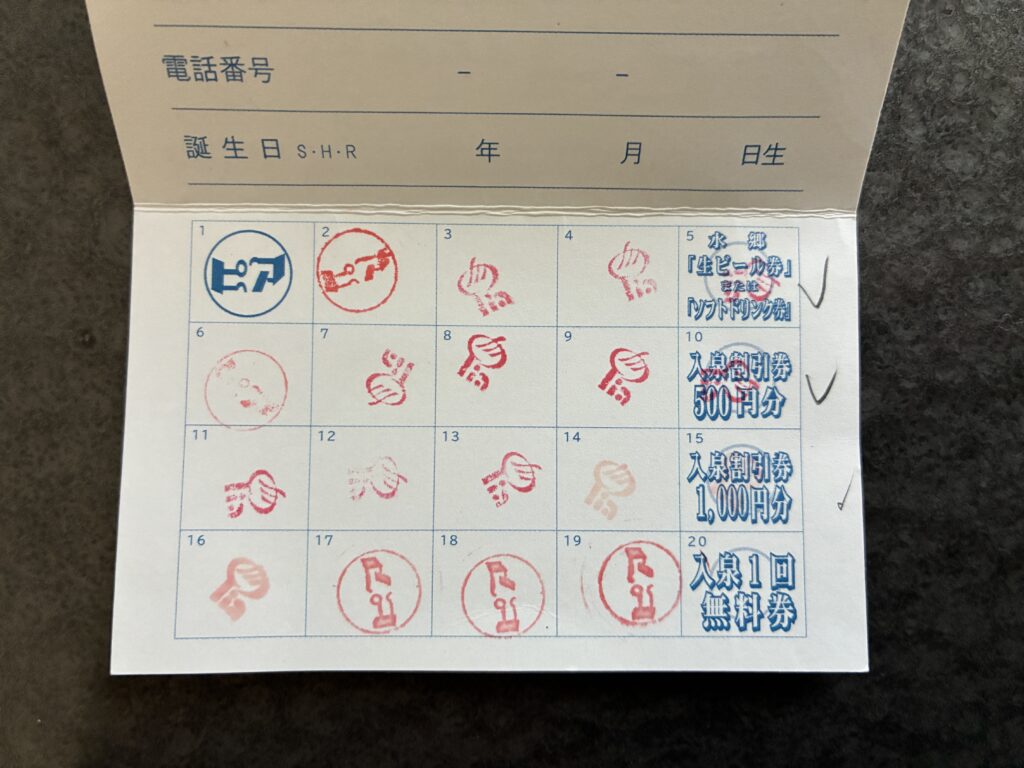 電話番号 － －
誕生日 S・H・R 年 月 日生
1 2 3 4 5
水郷
「生ビール券」
または
「ソフトドリンク券」
6 7 8 9 10
入泉割引券
500円分
11 12 13 14 15
入泉割引券
1,000円分
16 17 18 19 20
入泉1回
無料券